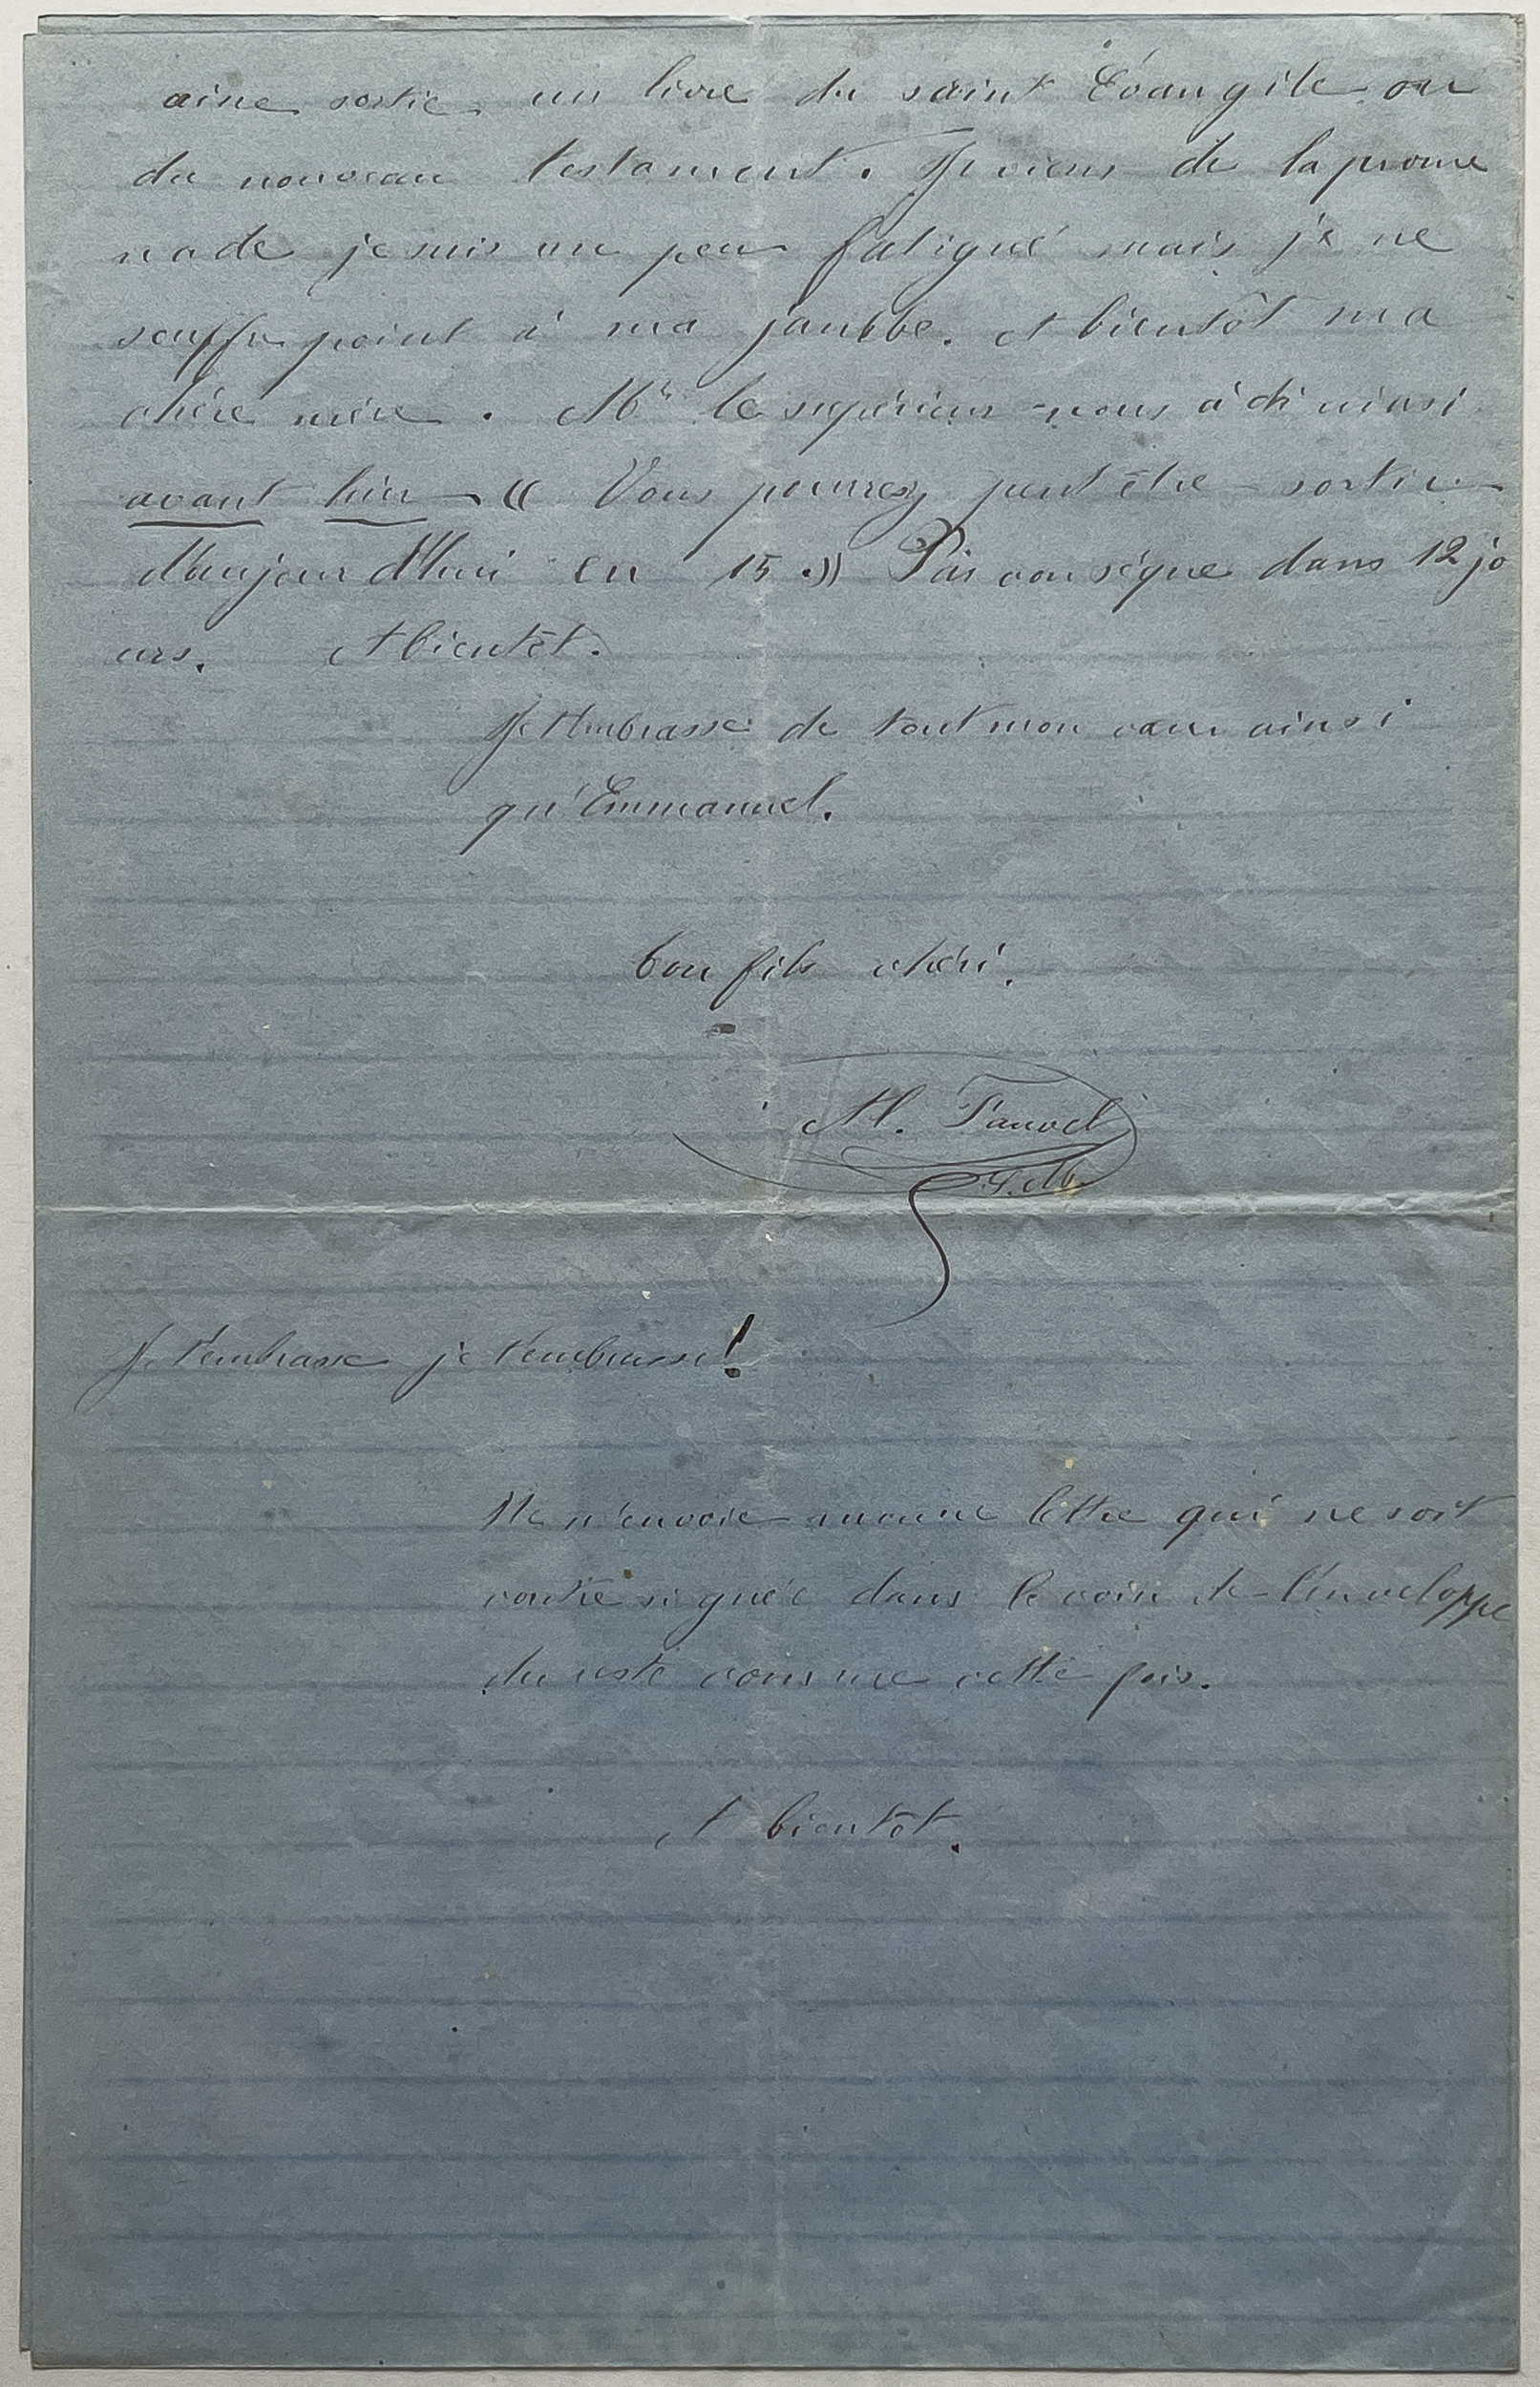 aine sortie, un livre du saint Évangile ou
du nouveau testament. Je viens de la prome
nade je suis un peu fatigué mais je ne
souffre point à ma jambbe. A bientôt ma
chère mère. Mr le supérieur nous à dit ainsi
avant hier « Vous pourrez peut être sortir
d'aujourd'hui en 15.» Par conséque dans 12 jo
urs. A bientôt.
Je t'embrasse de tout mon cœur ainsi
qu'Emmanuel.
ton fils chéri.
M. Fauvel
Je t'embrasse je t'embrasse!
Ne m'envoie aucune lettre qui ne soit
contre signée dans le coin de l'enveloppe
du reste comme cette fois.
A bientôt.